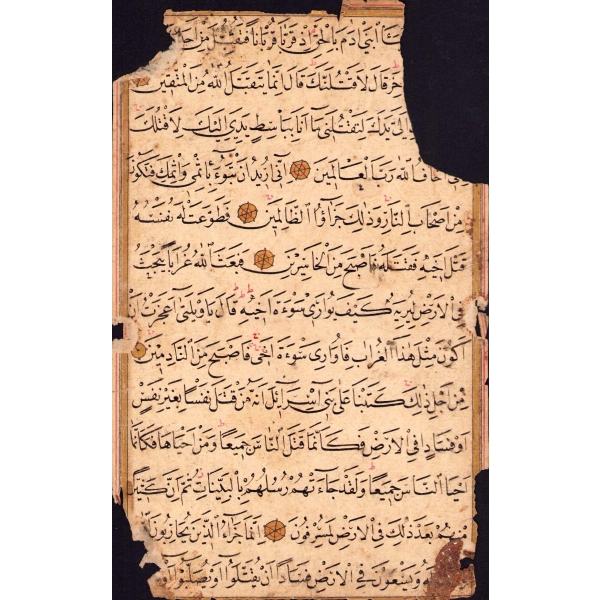 نبأ ابني ادم بالحق اذ قربا قربانا فتقبل من احد
خر قال لاقتلنك قال انما يتقبل الله من المتقين
الي يدك لتقتلني ما انا بباسط يدي اليك لاقتلك
اخاف الله رب العالمين اني اريد ان تبوء باثمي واثمك فتكون
من اصحاب النار وذلك جزاؤا الظالمين فطوعت له نفسه
قتل اخيه فقتله فاصبح من الخاسرين فبعث الله غرابا يبحث
في الارض ليريه كيف يواري سوءة اخيه قال ياويلتى اعجزت ان
اكون مثل هذا الغراب فاواري سوءة اخي فاصبح من النادمين
من اجل ذلك كتبنا على بني اسرائل انه من قتل نفسا بغير نفس
او فساد في الارض فكانما قتل الناس جميعا ومن احياها فكانما
احيا الناس جميعا ولقد جاءتهم رسلهم بالبينات ثم ان كثيرا
منهم بعد ذلك في الارض لمسرفون انما جزاء الذين يحاربون
ويسعون في الارض فسادا ان يقتلوا او يصلبوا او